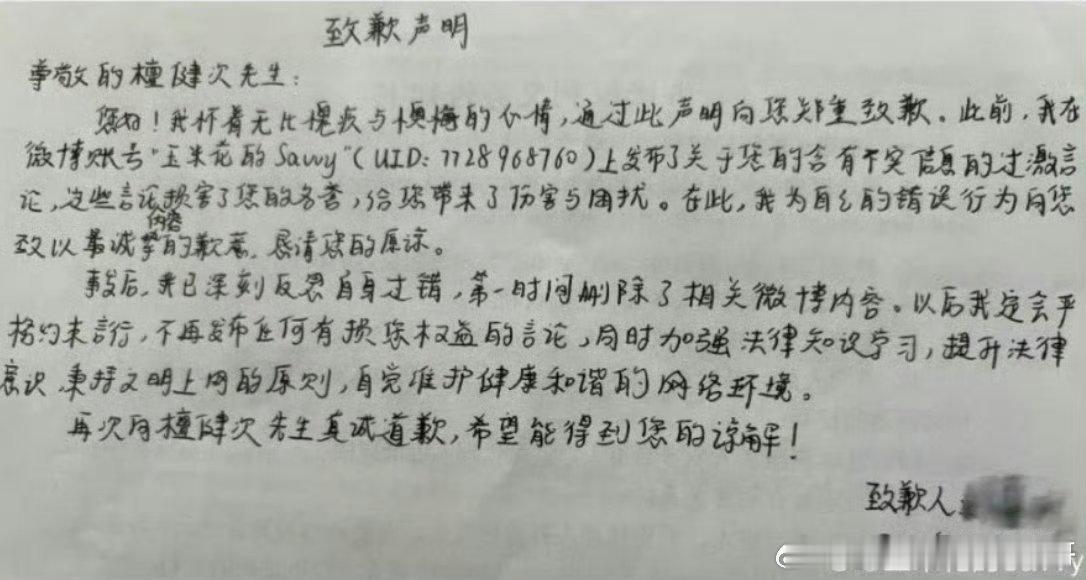 致歉声明
尊敬的檀健次先生:
您好!我怀着无比愧疚与懊悔的心情,通过此声明向您郑重致歉。此前,我在
微博账号"玉米花的Savvy"(UID:7728968760)上发布了关于您的含有不实信息的过激言
论,这些言论内容损害了您的名誉,给您带来了伤害与困扰。在此,我为自己的错误行为向您
致以最诚挚的歉意,恳请您的原谅。
事发后,我已深刻反思自身过错,第一时间删除了相关微博内容。以后我定会严
格约束言行,不再发布任何有损您权益的言论,同时加强法律知识学习,提升法律
意识,秉持文明上网的原则,自觉维护健康和谐的网络环境。
再次向檀健次先生真诚道歉,希望能得到您的谅解!
致歉人